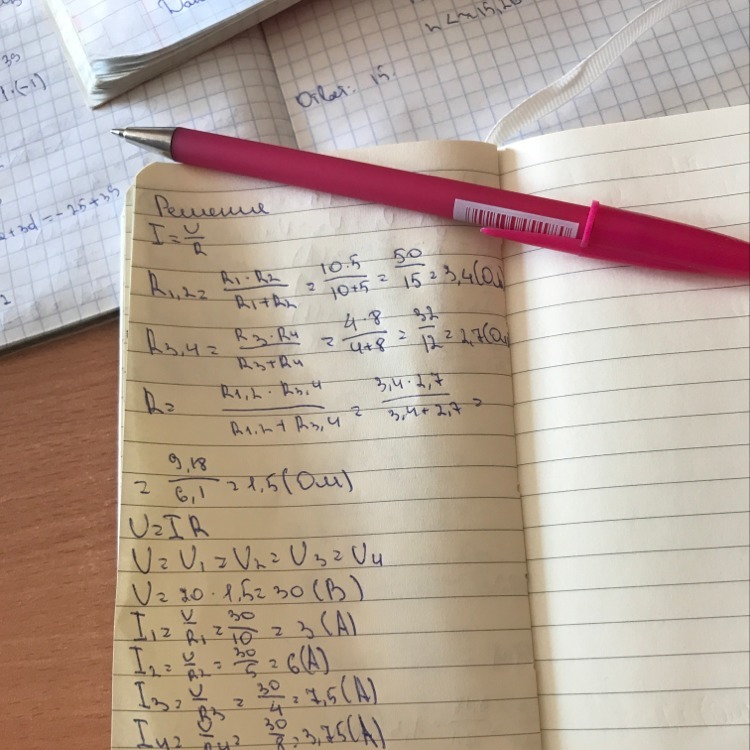 39
1·(-1)
Ответ: 15.
+3d = -25+39
Решение
I = U/R
R1,2 = R1·R2/R1+R2 = 10·5/10+5 = 50/15 = 3,4(Ом
R3,4 = R3·R4/R3+R4 = 4·8/4+8 = 32/12 = 2,7(Ом
R = R1,2·R3,4/R1,2+R3,4 = 3,4·2,7/3,4+2,7 =
= 9,18/6,1 = 1,5(Ом)
U = IR
U = U1 = U2 = U3 = U4
U = 20·1,5 = 30(В)
I1 = U/R1 = 30/10 = 3(А)
I2 = U/R2 = 30/5 = 6(А)
I3 = U/R3 = 30/4 = 7,5(А)
I4 = U/R4 = 30/8 = 3,75(А)